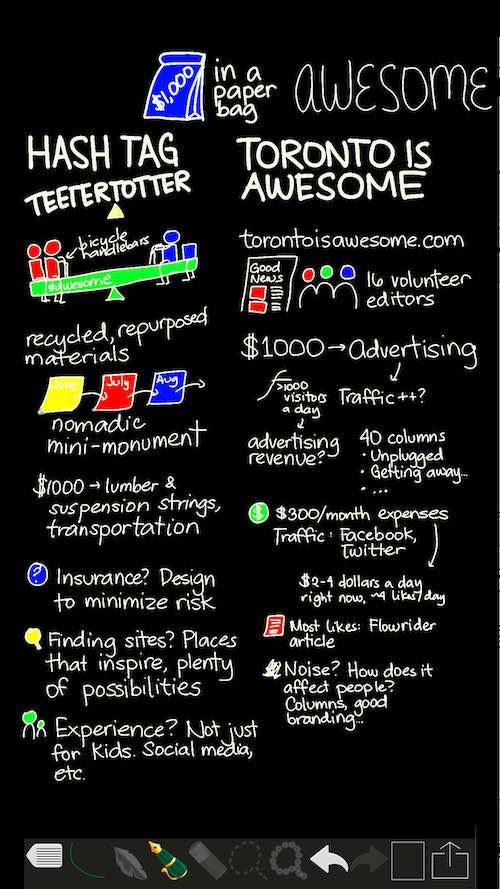 $1,000
in a
paper
bag
AWESOME
HASH TAG
TEETERTOTTER
bicycle
handlebars
#awesome
recycled, repurposed
materials
June
July
Aug
nomadic
mini-monument
$1000 → lumber &
suspension strings,
transportation
? Insurance? Design
to minimize risk
Finding sites? Places
that inspire, plenty
of possibilities
Experience? Not just
for kids. Social media,
etc.
TORONTO IS
AWESOME
torontoisawesome.com
Good
News
16 volunteer
editors
$1000 → Advertising
>1000
visitors
a day
Traffic ++?
advertising
revenue?
40 columns
• Unplugged
• Getting away...
• ...
$ $300/month expenses
Traffic: Facebook,
Twitter
$2-4 dollars a day
right now, ~4 likes/day
Most likes: Flowrider
article
Noise? How does it
affect people?
Columns, good
branding...